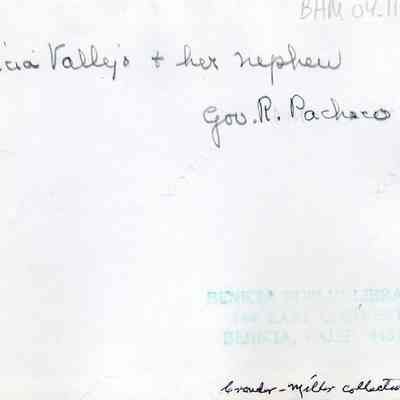 BAM 04.11
icia Vallejo + her nephew
Gov. R. Pacheco
BENICIA PUBLIC LIBRA
144 EAST G STREET
BENICIA, CALIF. 945
Crowder-Miller collectio